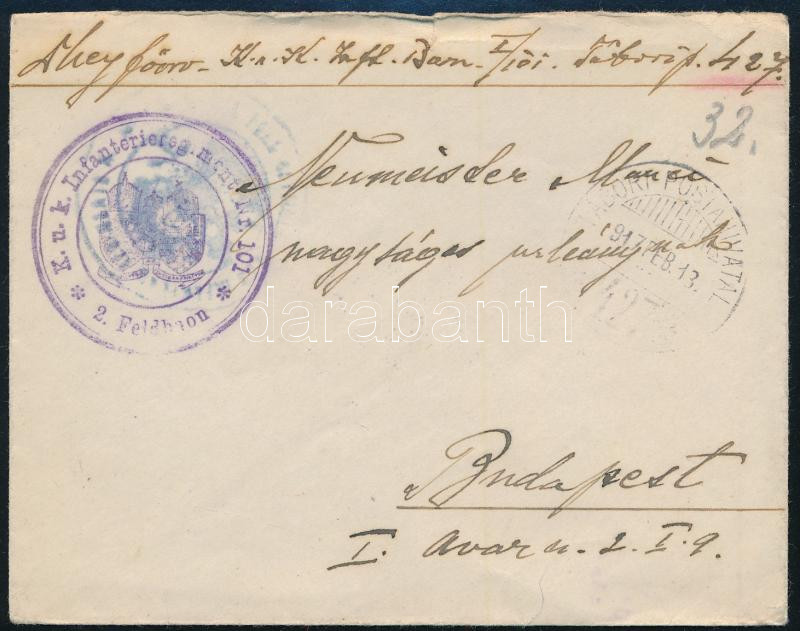 főorv. K. u. K. Inft. Baon. I/101. Táborip. 427.
32.
K. u. k. Infanteriereg.ment Nr. 101
2. Feldbaon
TÁBORI POSTAHIVATAL
917 FEB. 13.
427
Neumeister Marcsi
nagyságos urleánynak
darabanth
Budapest
I. Avar u. 2. I. 9.